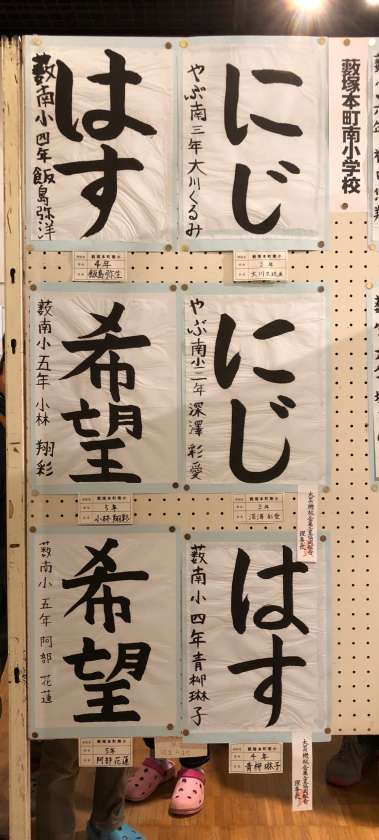 藪塚本町南小学校
にじ
やぶ南三年大川くるみ
藪塚本町南小
3年
はす
藪南小四年飯島弥洋
藪塚本町南小
4年
にじ
やぶ南小三年深澤彩愛
藪塚本町南小
3年
深澤彩愛
希望
藪南小五年小林翔彩
藪塚本町南小
5年
小林翔彩
はす
藪南小四年青柳琳子
藪塚本町南小
4年
青柳琳子
希望
藪南小五年阿部花蓮
藪塚本町南小
5年
阿部花蓮